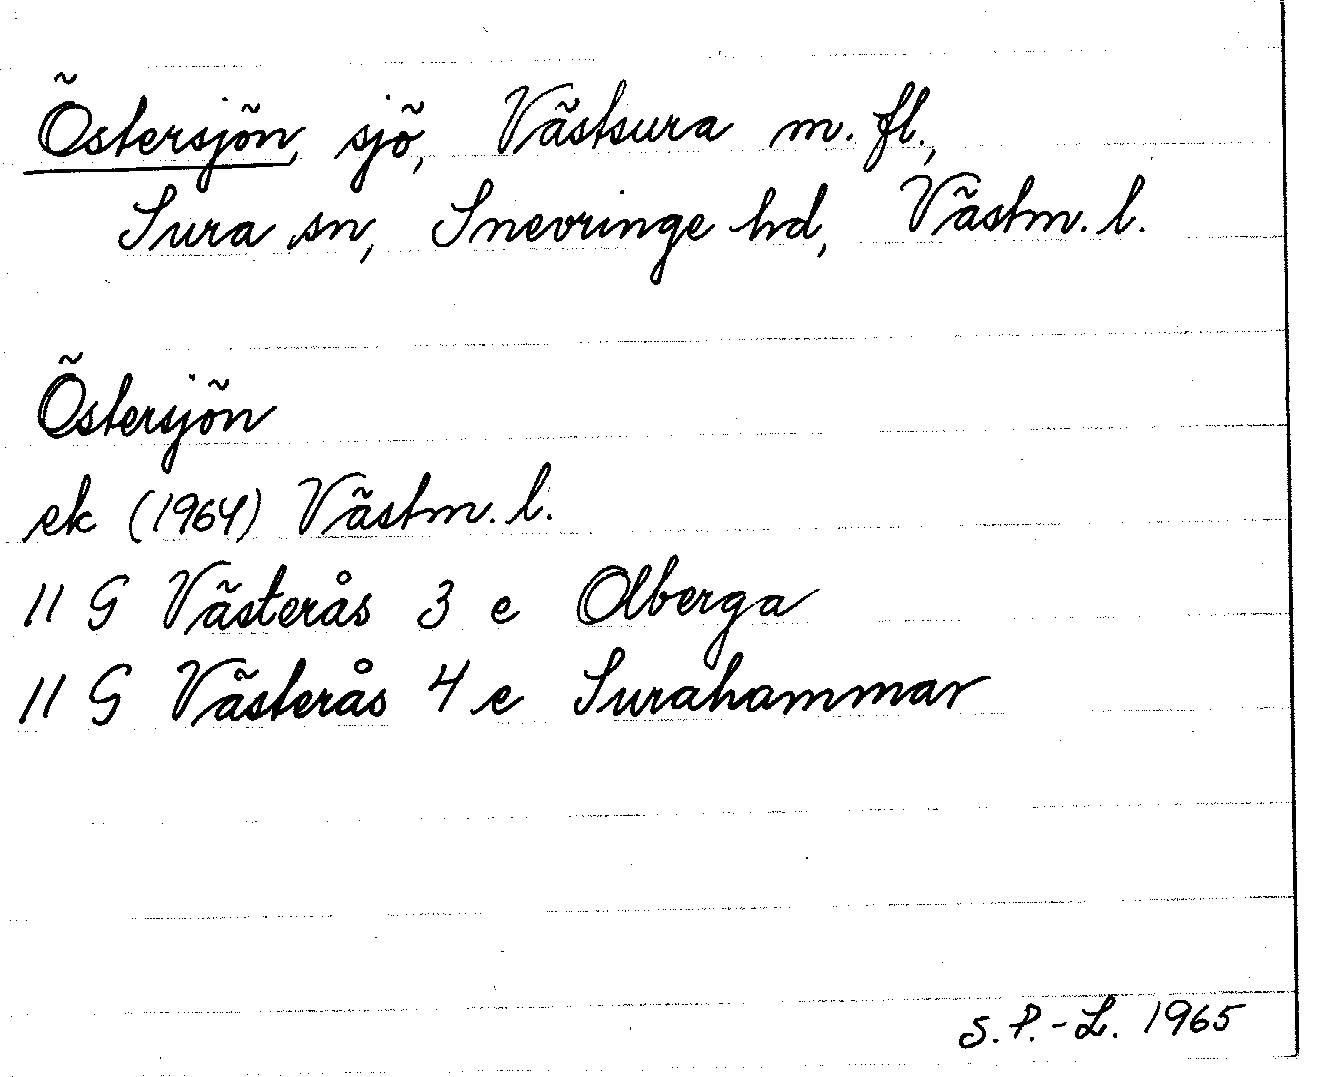 Östersjön, sjö, Västsura m. fl.,
Sura sn, Snevringe hd, Västm. l.
Östersjön
ek (1964) Västm. l.
11 G Västerås 3 e Olberga
11 G Västerås 4 e Surahammar
S. P.-L. 1965